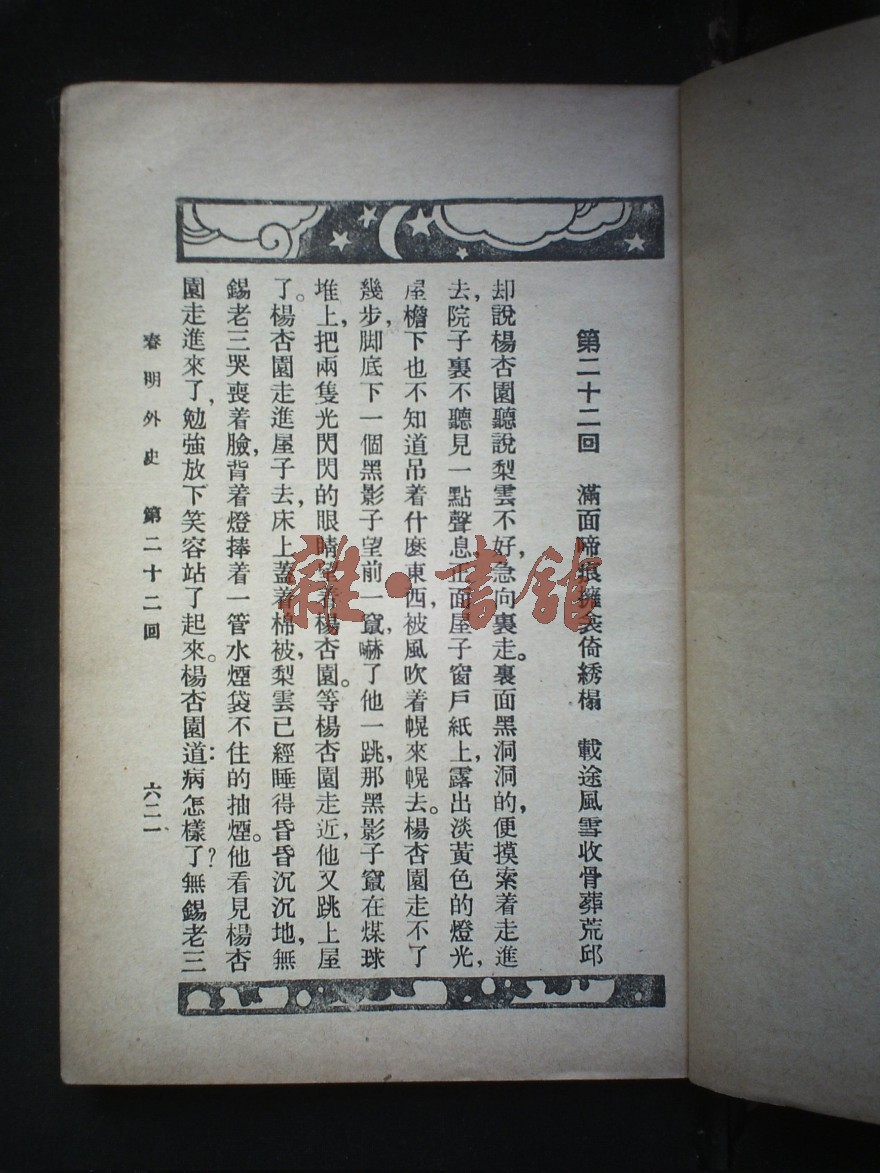 第二十二回　滿面啼痕擁衾倚綉榻　載途風雪收骨葬荒邱
却說楊杏園聽說梨雲不好，急向裏走。裏面黑洞洞的，便摸索着走進
去，院子裏不聽見一點聲息，正面屋子窗戶紙上，露出淡黃色的燈光，
屋檐下也不知道吊着什麼東西，被風吹着幌來幌去。楊杏園走不了
幾步，脚底下一個黑影子望前一竄，嚇了他一跳，那黑影子竄在煤球
堆上，把兩隻光閃閃的眼睛望着楊杏園。等楊杏園走近，他又跳上屋
了。楊杏園走進屋子去，床上蓋着棉被，梨雲已經睡得昏昏沉沉地，無
錫老三哭喪着臉，背着燈捧着一管水煙袋不住的抽煙。他看見楊杏
園走進來了，勉強放下笑容站了起來。楊杏園道：病怎樣了？無錫老三
春明外史　第二十二回　六二一
雜·書館